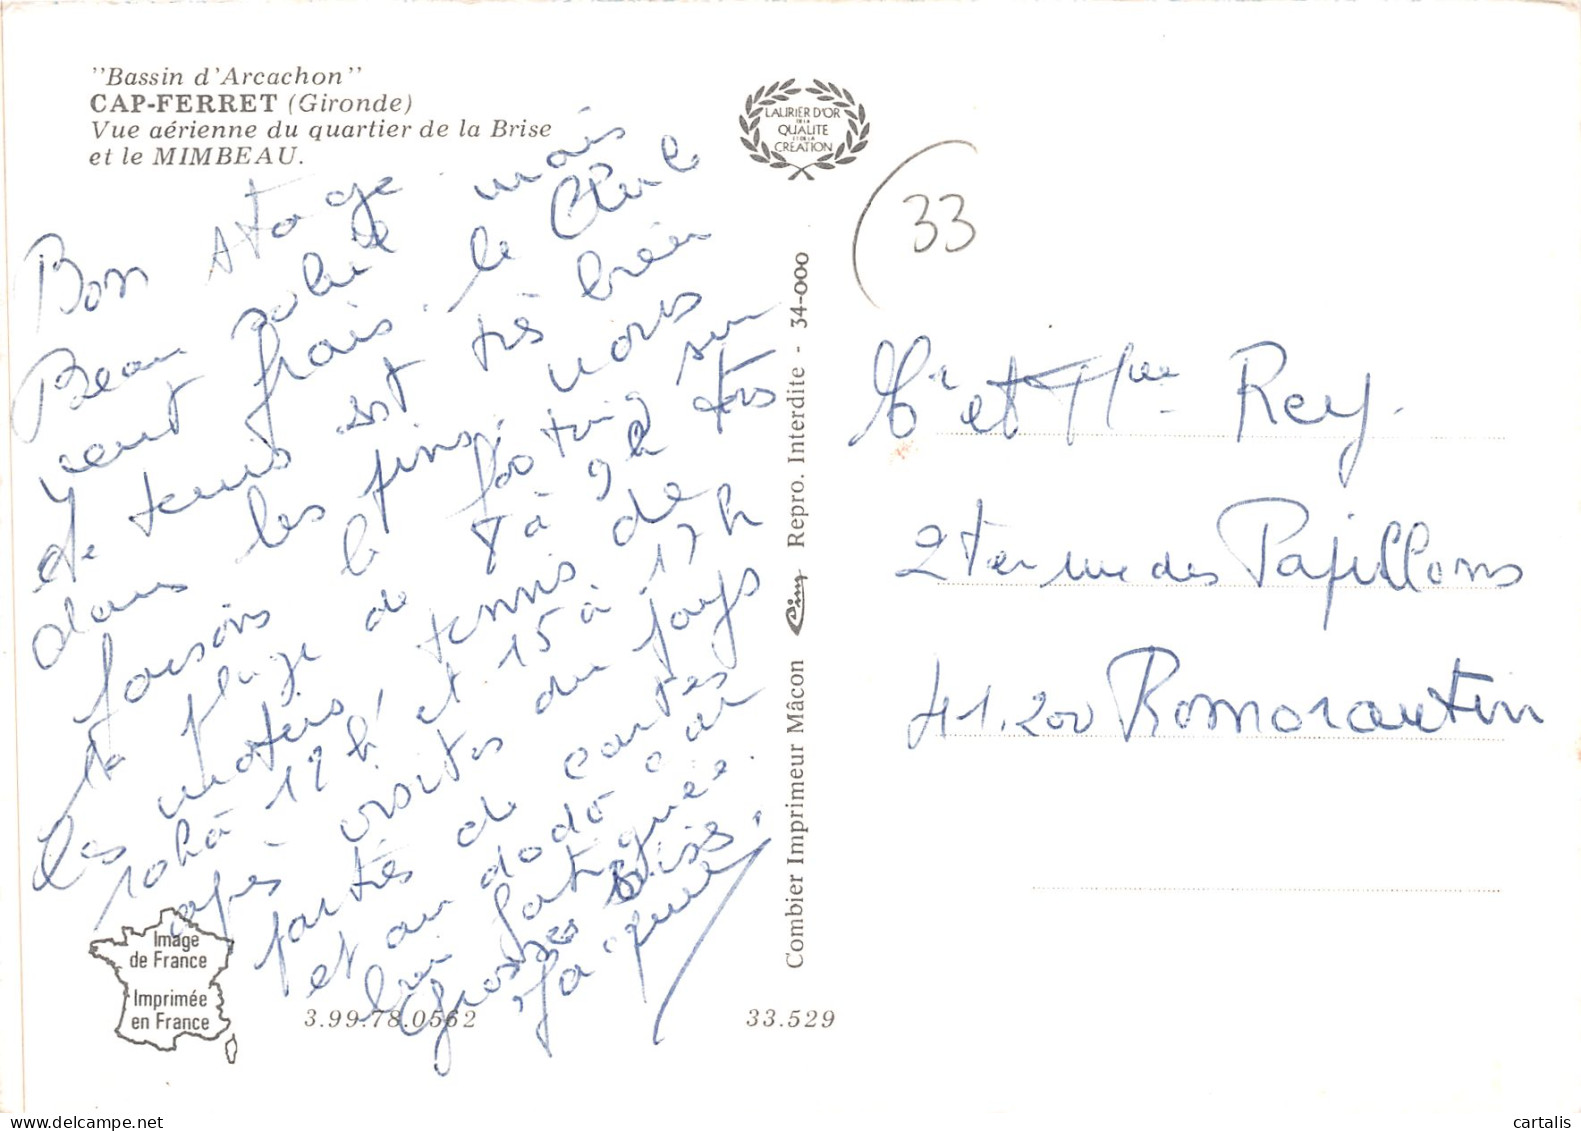 "Bassin d'Arcachon"
CAP-FERRET (Gironde)
Vue aérienne du quartier de la Brise
et le MIMBEAU.
LAURIER D'OR
DE LA
QUALITE
ET DE LA
CREATION
33
Bon stage mais
Beau soleil
vent frais. le Club
de tennis est très bien
dans les pins, nous
faisons le footing sur
la plage de 8 à 9h tous
les matins, tennis de
10h à 12h et 15 à 17h
après visites du pays
parties de cartes
et au dodo car
bien fatiguées
Grosses Bises.
Jacqueline
Mr et Mme Rey.
2 ter rue des Papillons
41.200 Romorantin
Combier Imprimeur Mâcon Cim Repro. Interdite - 34-000
Image
de France
Imprimée
en France
3.99.78.0562
33.529
cartalis
www.delcampe.net